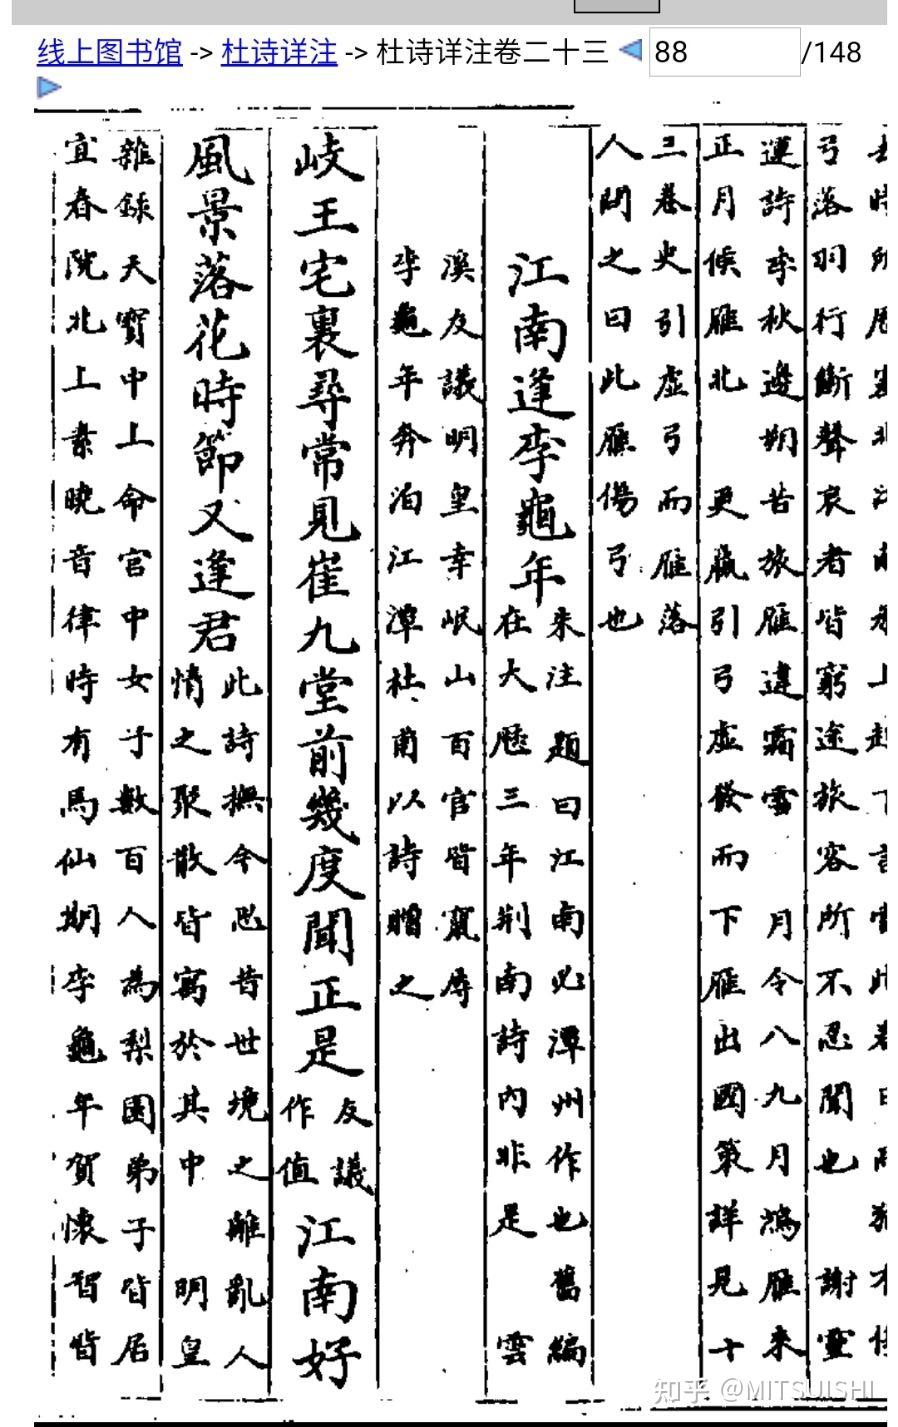 线上图书馆 -> 杜诗详注 -> 杜诗详注卷二十三 88/148
弓落羽行斷聲哀者皆窮途旅客所不忍聞也 謝靈
運詩季秋邊朔苦旅雁違霜雪 月令八九月鴻雁來
正月候雁北 更羸引弓虛發而下雁出國策詳見十
三卷史引虛弓而雁落
人問之曰此雁傷弓也
江南逢李龜年
朱注題曰江南必潭州作也舊編
在大曆三年荆南詩內非是 雲
溪友議明皇幸岷山百官皆竄辱
李龜年奔泊江潭杜甫以詩贈之
岐王宅裏尋常見崔九堂前幾度聞正是
友議
作值
江南好
風景落花時節又逢君
此詩撫今思昔世境之離亂人
情之聚散皆寓於其中 明皇
雜錄天寶中上命宮中女子數百人為梨園弟子皆居
宜春院北上素曉音律時有馬仙期李龜年賀懷智皆
知乎 @MITSUISHI